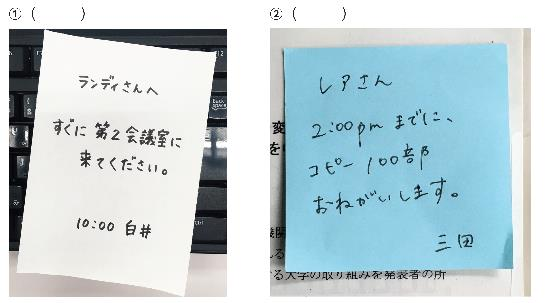 ①（　　　）
ランディさんへ
すぐに 第2会議室に
来てください。
10:00 白井
②（　　　）
レアさん
2:00pm までに、
コピー 100部
おねがいします。
三田
変
を
機関
る大学の取り組みを発表者の所